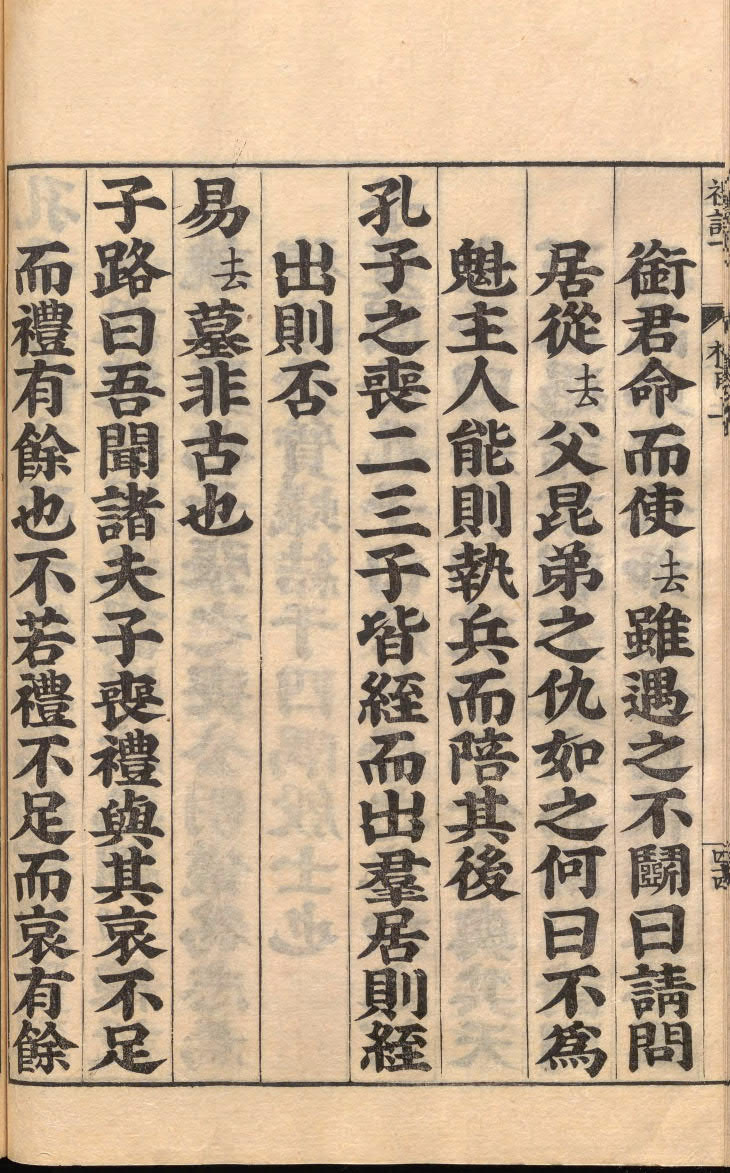 銜君命而使去雖遇之不鬭曰請問
居從去父昆弟之仇如之何曰不爲
魁主人能則執兵而陪其後
孔子之喪二三子皆絰而出羣居則絰
出則否
易去墓非古也
子路曰吾聞諸夫子喪禮與其哀不足
而禮有餘也不若禮不足而哀有餘